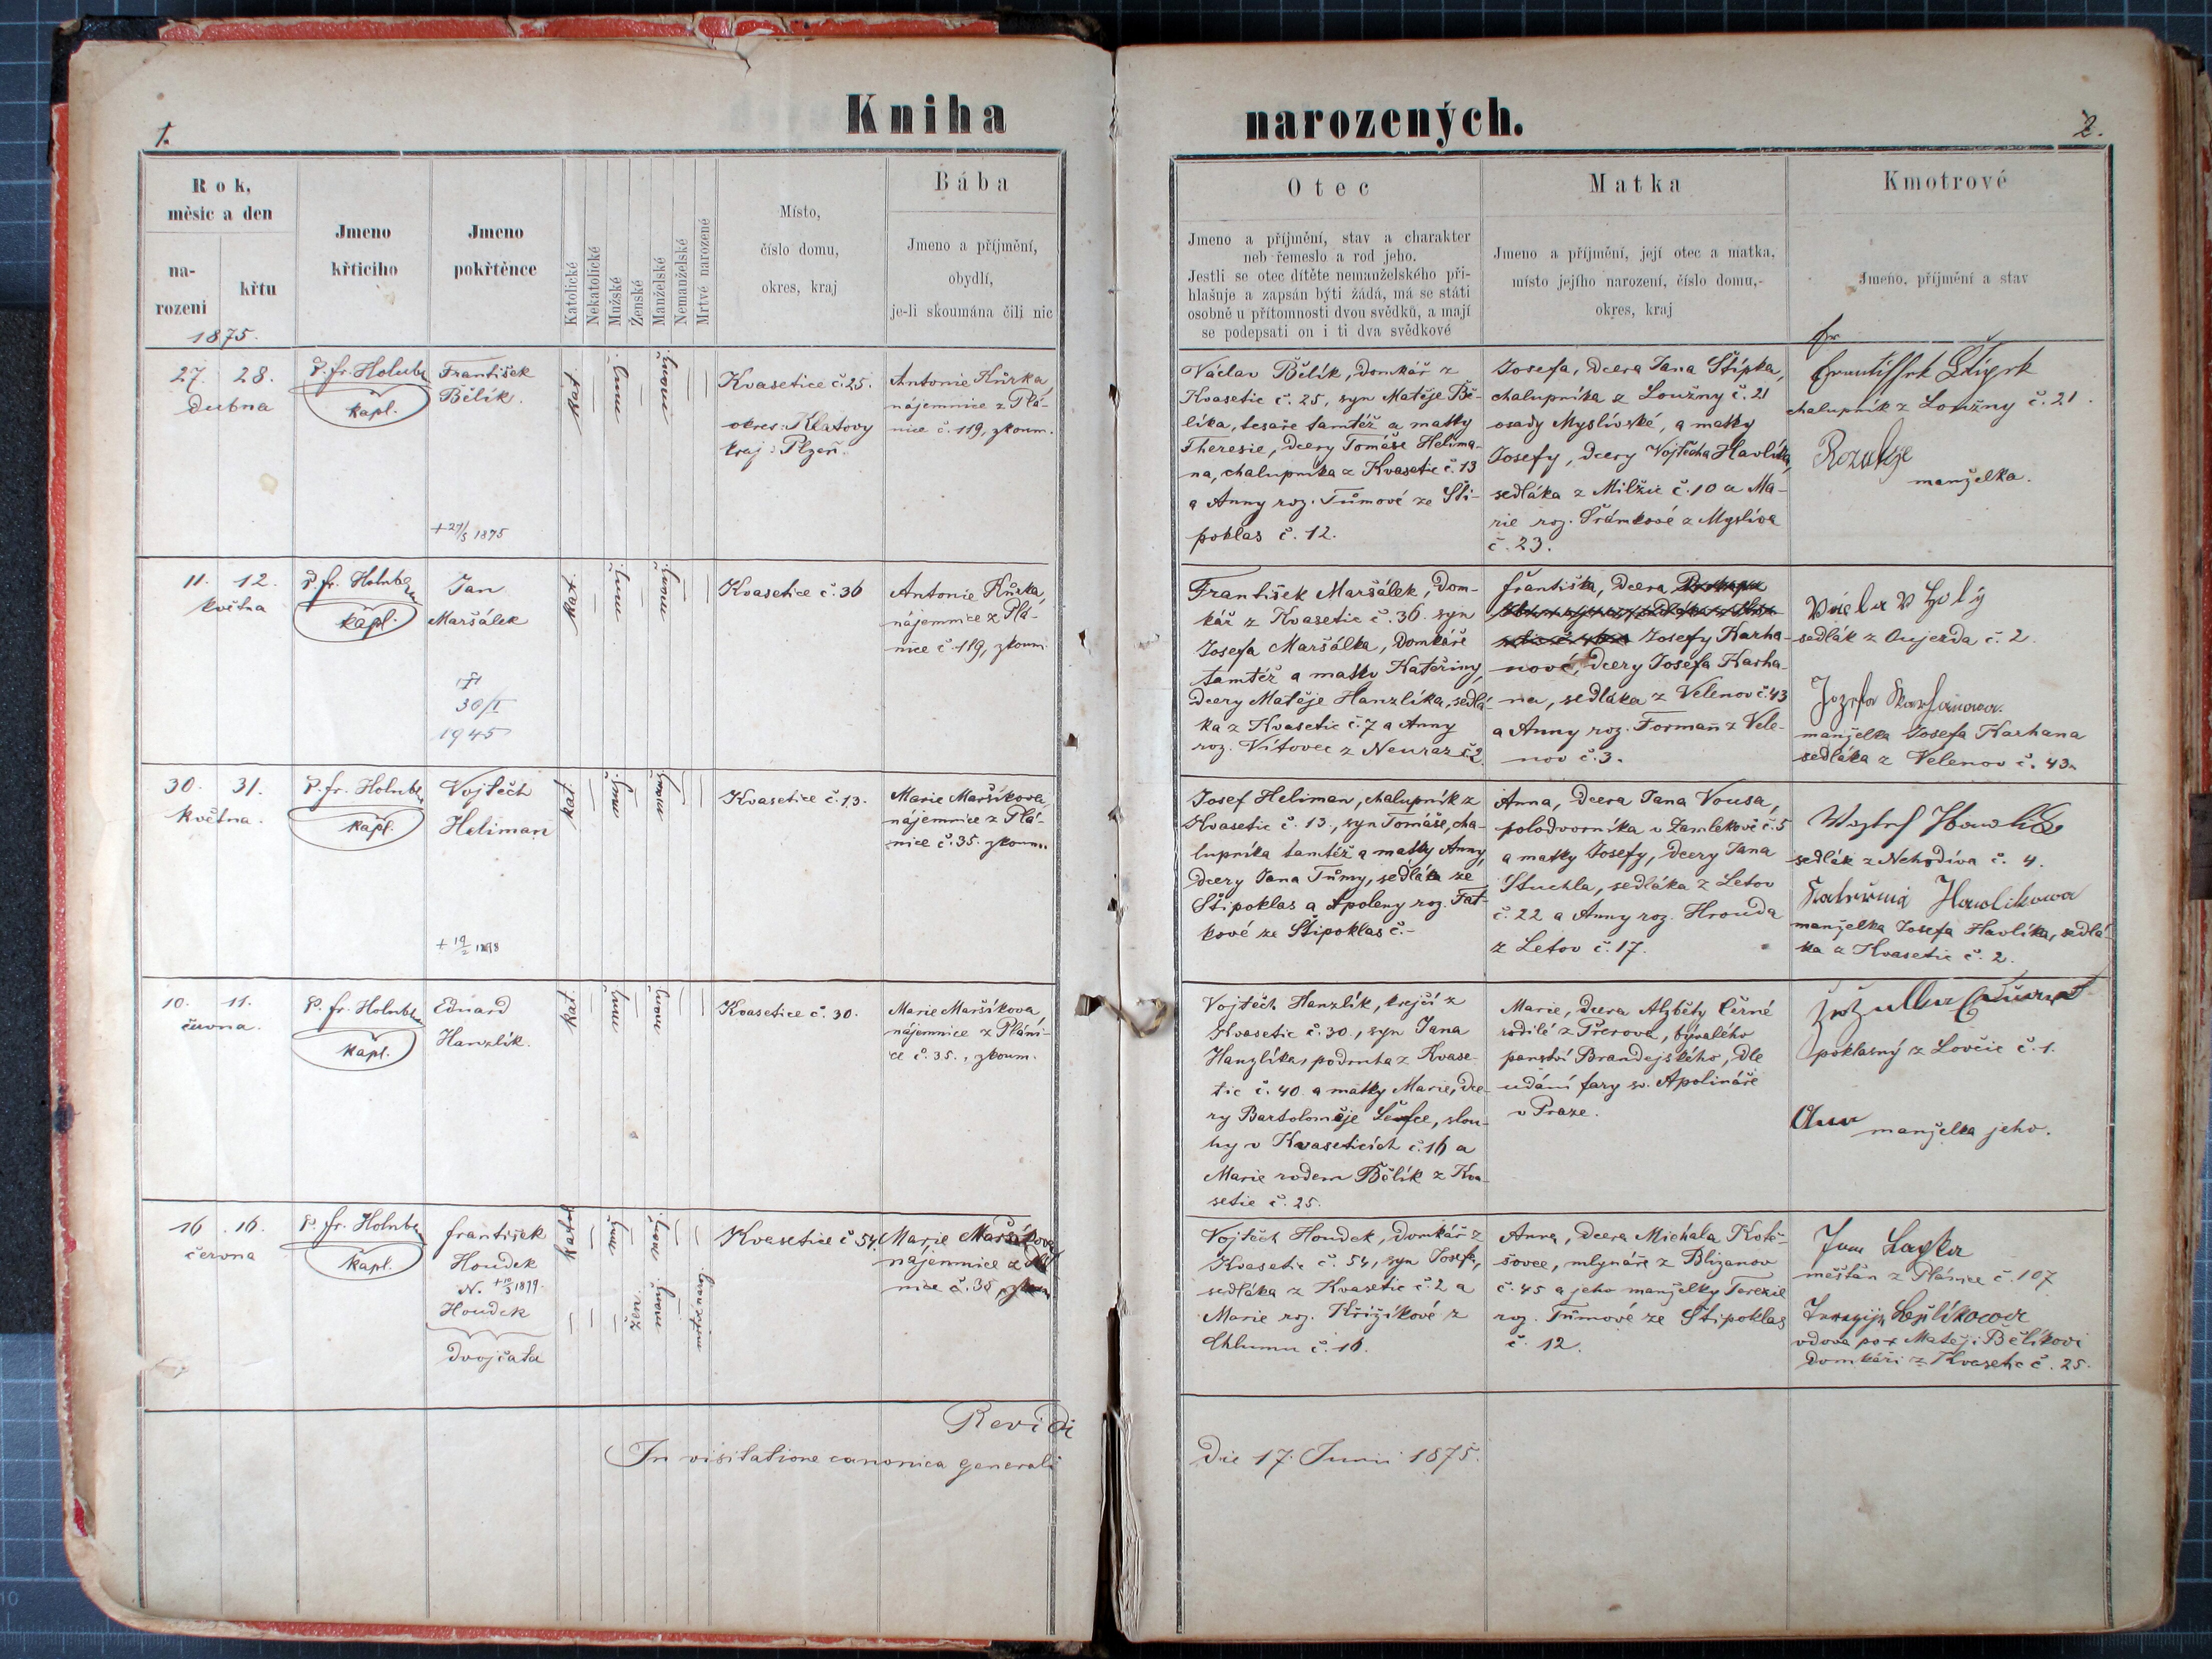 Kniha narozených.
1.
2.
Rok,
měsíc a den
na-
rození
křtu
1875.
Jmeno
křticího
Jmeno
pokřtěnce
Katolické
Nekatolické
Mužské
Ženské
Manželské
Nemanželské
Mrtvé narozené
Místo,
číslo domu,
okres, kraj
Bába
Jmeno a příjmění,
obydlí,
je-li skoumána čili nic
Otec
Jmeno a příjmění, stav a charakter
neb řemeslo a rod jeho.
Jestli se otec dítěte nemanželského při-
hlašuje a zapsán býti žádá, má se státi
osobně u přítomnosti dvou svědků, a mají
se podepsati on i ti dva svědkové
Matka
Jmeno a příjmění, její otec a matka,
místo jejího narození, číslo domu,
okres, kraj
Kmotrové
Jmeno, příjmění a stav
27. 28.
Dubna
P. fr. Holub
kapl.
František
Bělík.
+27/5 1875
kat.
Kvasetice č. 25.
okres: Klatovy
kraj: Plzeň.
Antonie Kůrka,
nájemnice z Plá-
nice č. 119, zkoum.
Václav Bělík, domkář z
Kvasetic č. 25, syn Matěje Bě-
líka, tesaře tamtéž a matky
Theresie, dcery Tomáše Helima-
na, chalupníka z Kvasetic č. 13
a Anny roz. Tůmové ze Šti-
poklas č. 12.
Josefa, dcera Jana Štípka,
chalupníka z Loužny č. 21
osady Myslívské, a matky
Josefy, dcery Vojtěcha Havlíka,
sedláka z Milžic č. 10 a Ma-
rie roz. Šrámkové z Myslíva
č. 23.
fr
chalupník z Loužny č. 21.
Rozalije
manželka.
11. 12.
května
P. fr. Holub
kapl.
Jan
Maršálek
†
30/I
1945
kat.
Kvasetice č. 36
Antonie Kůrka,
nájemnice z Plá-
nice č. 119, zkoum.
František Maršálek, dom-
kář z Kvasetic č. 36. syn
Josefa Maršálka, domkáře
tamtéž a matky Kateřiny,
dcery Matěje Hanzlíka, sedlá-
ka z Kvasetic č. 7 a Anny
roz. Vítovec z Neuraz č. 2
Františka, dcera
Josefy Karha-
nové, dcery Josefa Karha-
na, sedláka z Velenov č. 43
a Anny roz. Formaň z Vele-
nov č. 3.
Václav Holý
sedlák z Oujezda č. 2.
Jozefa Karhanowa.
manželka Josefa Karhana
sedláka z Velenov č. 43.
30. 31.
Května.
P. fr. Holub
kapl.
Vojtěch
Heliman
+ 19/2 1898
kat.
Kvasetice č. 13.
Marie Maršíkova,
nájemnice z Plá-
nice č. 35. zkoum.
Josef Heliman, chalupník z
Kvasetic č. 13., syn Tomáše, cha-
lupníka tamtéž a matky Anny,
dcery Jana Tůmy, sedláka ze
Štipoklas a Apoleny roz. Fat-
kové ze Štipoklas č. -
Anna, dcera Jana Vousa,
polodvorníka v Zamlekově č. 5
a matky Josefy, dcery Jana
Stuchla, sedláka z Letov
č. 22 a Anny roz. Hrouda
z Letov č. 17.
sedlák z Nehodíva č. 4.
Hawlikowa
manželka Josefa Havlíka, sedlá-
ka z Kvasetic č. 2.
10. 11.
června.
P. fr. Holub
kapl.
Eduard
Hanzlík.
kat.
Kvasetice č. 30.
Marie Maršíkova,
nájemnice z Pláni-
ce č. 35., zkoum.
Vojtěch Hanzlík, krejčí z
Kvasetic č. 30., syn Jana
Hanzlíka, podruha z Kvase-
tic č. 40. a matky Marie, dce-
ry Bartoloměje Šefce, slou-
hy v Kvaseticích č. 16 a
Marie rodem Bělík z Kva-
setic č. 25.
Marie, dcera Alzběty Černé
rodilé z Přerova, bývalého
panství Brandejského, dle
udání fary sv. Apolináře
v Praze.
poklasný z Lovčic č. 1.
manželka jeho.
16. 16.
června
P. fr. Holub
kapl.
František
Houdek
N. +10/3 1899.
Houdek
dvojčata
katol
žen.
Kvasetice č. 54.
Marie Maršíkova
nájemnice z Plá
nice č. 35
Vojtěch Houdek, domkář z
Kvasetic č. 54, syn Josefa,
sedláka z Kvasetic č. 2 a
Marie roz. Křižíkové z
Chlumu č. 16.
Anna, dcera Michala Kotě-
šovce, mlynáře z Blizanov
č. 45 a jeho manželky Terezie
roz. Tůmové ze Štipoklas
č. 12.
měšťan z Plánice č. 107
vdova po + Matěji Bělíkovi
domkáři z Kvasetic č. 25.
Revidi
In visitatione canonica generali die 17. Junii 1875.